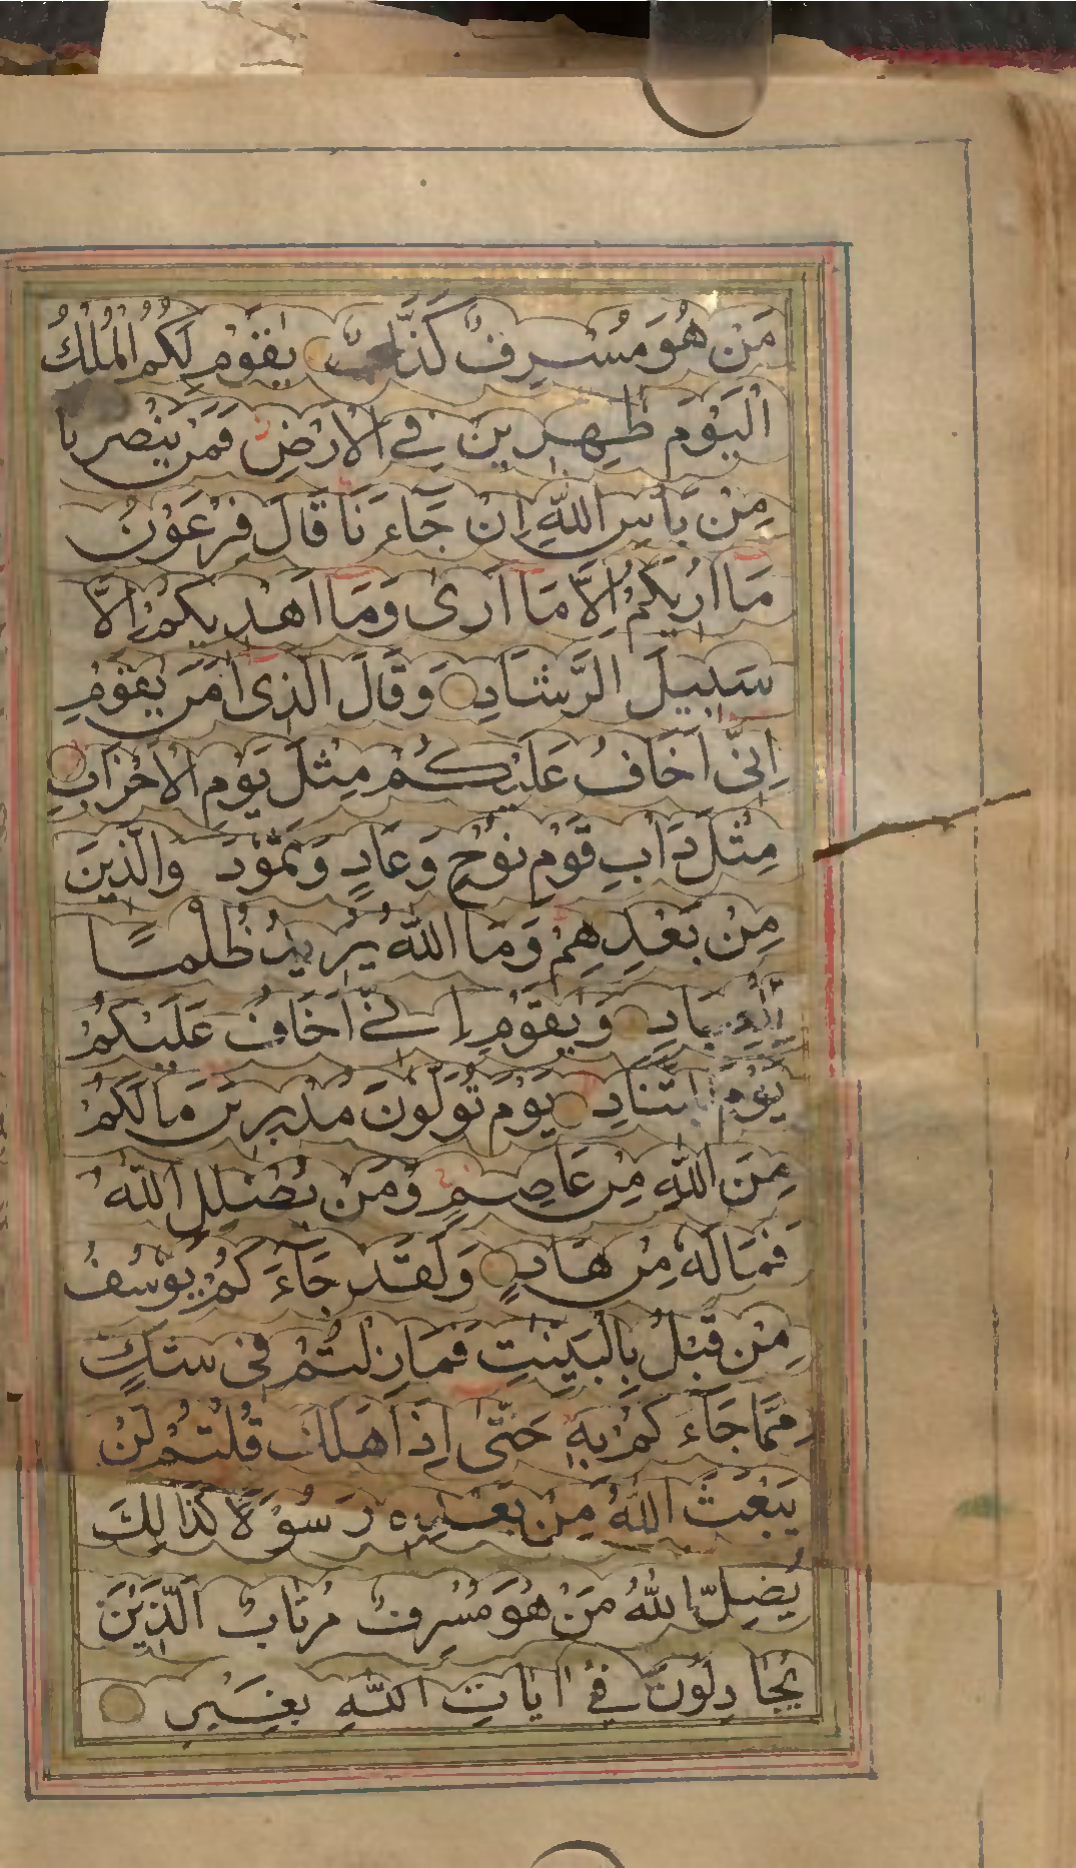 مَنْ هُوَ مُسْرِفٌ كَذَّابٌ يٰقَوْمِ لَكُمُ الْمُلْكُ
الْيَوْمَ ظٰهِرِينَ فِي الْاَرْضِ فَمَنْ يَنْصُرُنَا
مِنْ بَاْسِ اللّٰهِ اِنْ جَاءَنَا قَالَ فِرْعَوْنُ
مَا اُرِيكُمْ اِلَّا مَا اَرٰى وَمَا اَهْدِيكُمْ اِلَّا
سَبِيلَ الرَّشَادِ وَقَالَ الَّذِى اٰمَنَ يٰقَوْمِ
اِنِّى اَخَافُ عَلَيْكُمْ مِثْلَ يَوْمِ الْاَحْزَابِ
مِثْلَ دَاْبِ قَوْمِ نُوْحٍ وَعَادٍ وَثَمُوْدَ وَالَّذِينَ
مِنْ بَعْدِهِمْ وَمَا اللّٰهُ يُرِيدُ ظُلْمًا
لِلْعِبَادِ وَيٰقَوْمِ اِنِّى اَخَافُ عَلَيْكُمْ
يَوْمَ التَّنَادِ يَوْمَ تُوَلُّونَ مُدْبِرِينَ مَا لَكُمْ
مِنَ اللّٰهِ مِنْ عَاصِمٍ وَمَنْ يُضْلِلِ اللّٰهُ
فَمَا لَهٗ مِنْ هَادٍ وَلَقَدْ جَآءَكُمْ يُوْسُفُ
مِنْ قَبْلُ بِالْبَيِّنٰتِ فَمَا زِلْتُمْ فِى شَكٍّ
مِمَّا جَآءَكُمْ بِهٖ حَتّٰى اِذَا هَلَكَ قُلْتُمْ لَنْ
يَبْعَثَ اللّٰهُ مِنْ بَعْدِهٖ رَسُوْلًا كَذَالِكَ
يُضِلُّ اللّٰهُ مَنْ هُوَ مُسْرِفٌ مُرْتَابٌ الَّذِيْنَ
يُجَادِلُونَ فِىْ اٰيَاتِ اللّٰهِ بِغَيْرِ